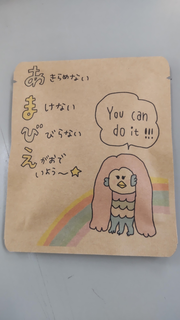 あきらめない
まけない
びびらない
えがおで
いよう〜☆
You can
do it !!!